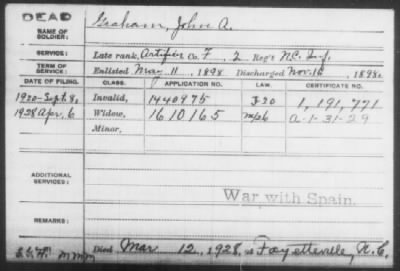 DEAD
NAME OF SOLDIER: Graham, John A.
SERVICE: Late rank, Artificer Co. F 2 Reg't N.C. Inf.
TERM OF SERVICE: Enlisted May 11, 1898 Discharged Nov. 16, 1898.
DATE OF FILING. CLASS. APPLICATION NO. LAW. CERTIFICATE NO.
1920-Sept. 8, Invalid, 1440975 J-20 1,191,771
1928 Apr. 6 Widow, 1610165 A-1-31-29
Minor,
ADDITIONAL SERVICES:
War with Spain.
REMARKS:
Died Mar. 12, 1928, at Fayetteville, N.C.